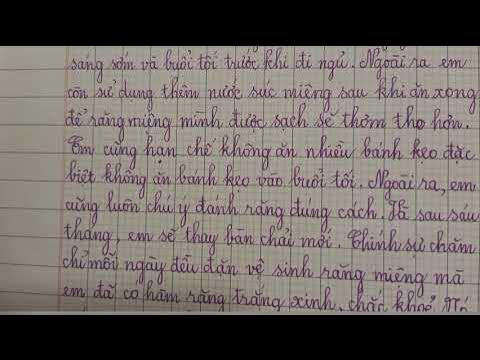 sáng sớm và buổi tối trước khi đi ngủ. Ngoài ra em
còn sử dụng thêm nước súc miệng sau khi ăn xong
để răng miệng mình được sạch sẽ thơm tho hơn.
Em cũng hạn chế không ăn nhiều bánh kẹo đặc
biệt không ăn bánh kẹo vào buổi tối. Ngoài ra, em
cũng luôn chú ý đánh răng đúng cách. Và sau sáu
tháng, em sẽ thay bàn chải mới. Chính sự chăm
chỉ mỗi ngày đều đặn vệ sinh răng miệng mà
em đã có hàm răng trắng xinh, chắc khoẻ. Nó